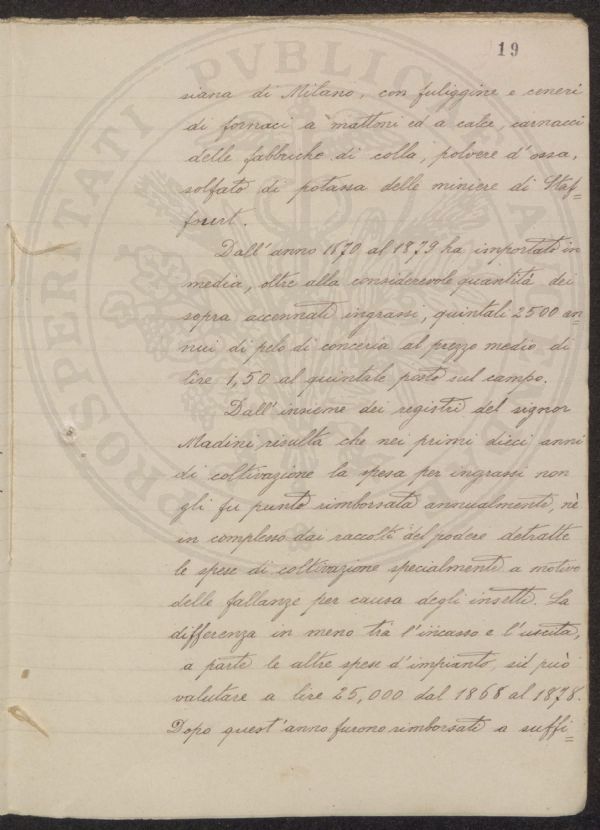 19
siana di Milano, con fuliggine e ceneri
di fornaci a mattoni ed a calce, carnacci
delle fabbriche di colla, polvere d'ossa,
solfato di potassa delle miniere di Staf=
furt.
Dall'anno 1870 al 1879 ha importati in
media, oltre alla considerevole quantità dei
sopra accennati ingrassi, quintali 2500 an=
nui di pelo di conceria al prezzo medio di
lire 1,50 al quintale posto sul campo.
Dall'insieme dei registri del signor
Madini risulta che nei primi dieci anni
di coltivazione la spesa per ingrassi non
gli fu punto rimborsata annualmente, nè
in complesso dai raccolti del podere detratte
le spese di coltivazione specialmente a motivo
delle fallanze per causa degli insetti. La
differenza in meno tra l'incasso e l'uscita,
a parte le altre spese d'impianto, si può
valutare a lire 25,000 dal 1868 al 1878.
Dopo quest'anno furono rimborsati a suffi=
PROSPERITATI PVBLICAE